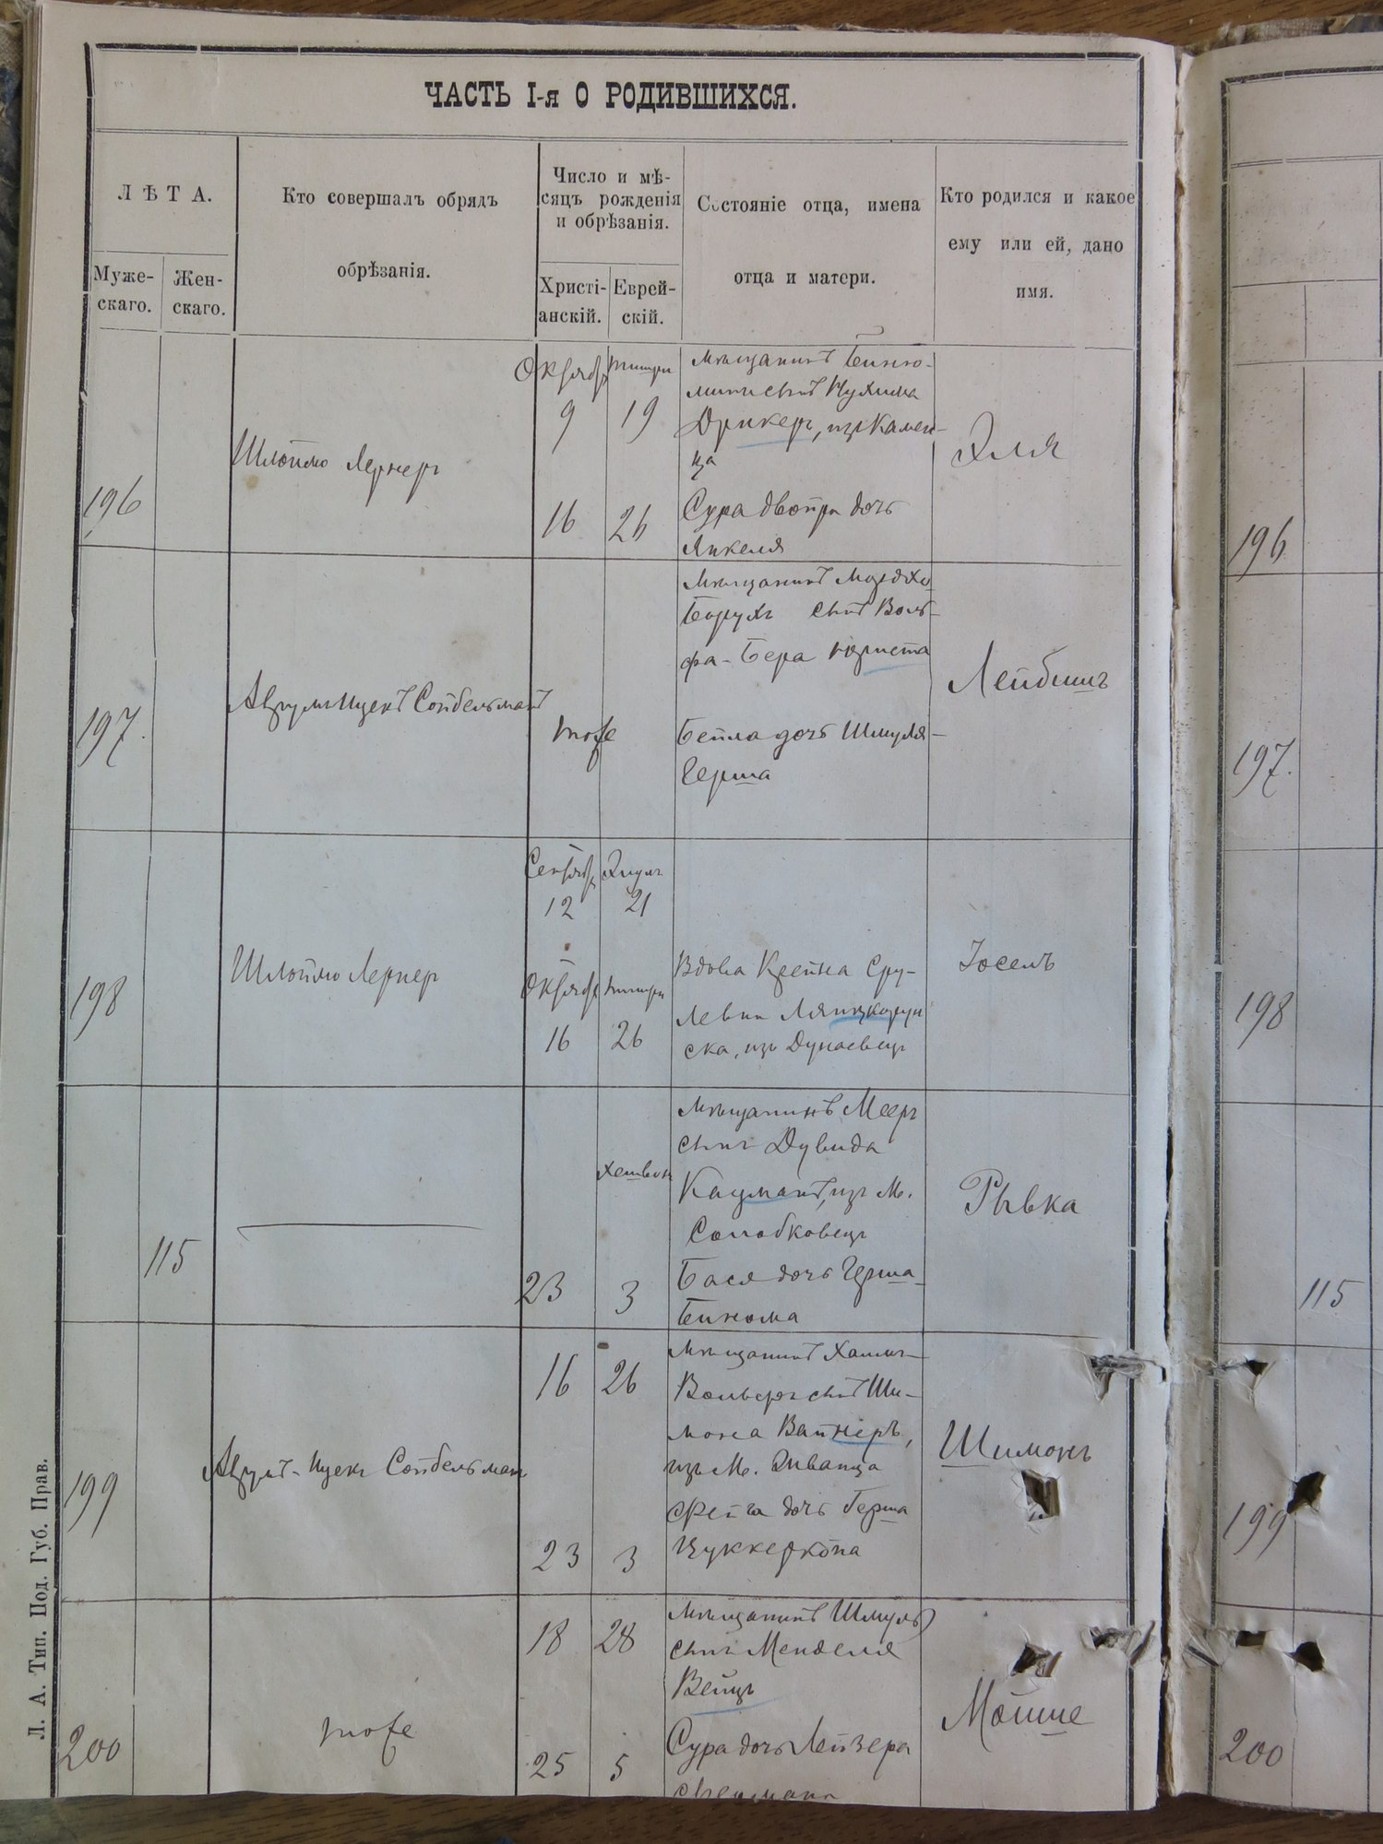 ЧАСТЬ I-я О РОДИВШИХСЯ.
ЛѢТА.
Муже-
скаго.
Жен-
скаго.
Кто совершалъ обрядъ
обрѣзанія.
Число и мѣ-
сяцъ рожденія
и обрѣзанія.
Христі-
анскій.
Еврей-
скій.
Состояніе отца, имена
отца и матери.
Кто родился и какое
ему или ей, дано
имя.
196
Шлоймо Лернеръ
Октября
9
16
Тишри
19
26
Мѣщанинъ
Дрикеръ, изъ Камен-
ца
Сура Двойра дочь
Янкеля
Эля
197.
Аврумъ Ицекъ Сойбельманъ
тоже
Мѣщанинъ
Борухъ сынъ Воль-
фа-Бера
Бейла дочь Шмуля-
Герша
Лейбишъ
198
Шлоймо Лернеръ
Сентября
12
Октября
16
Элулъ
21
Тишри
26
Вдова Крейна Сру-
левна
ска, изъ Дунаевецъ
Іосель
115
23
Хешвон
3
Мѣщанинъ Мееръ
сынъ Дувида
Кацманъ, изъ М.
Солобковецъ
Бася дочь Герша-
Бенюма
Рывка
199
Аврумъ-Ицекъ Сойбельман
16
23
26
3
Мѣщанинъ Хаимъ-
Вольберъ сынъ Ши-
мона Вайнеръ,
изъ М. Жванца
Фейга дочь Герша
Цуккеркопа
Шимонъ
200
тоже
18
25
28
5
Мѣщанинъ Шмуль
сынъ Менделя
Вейцъ
Сура дочь Лейзера
Мойше
Л. А. Тип. Под. Губ. Прав.
196
197.
198
115
199
200